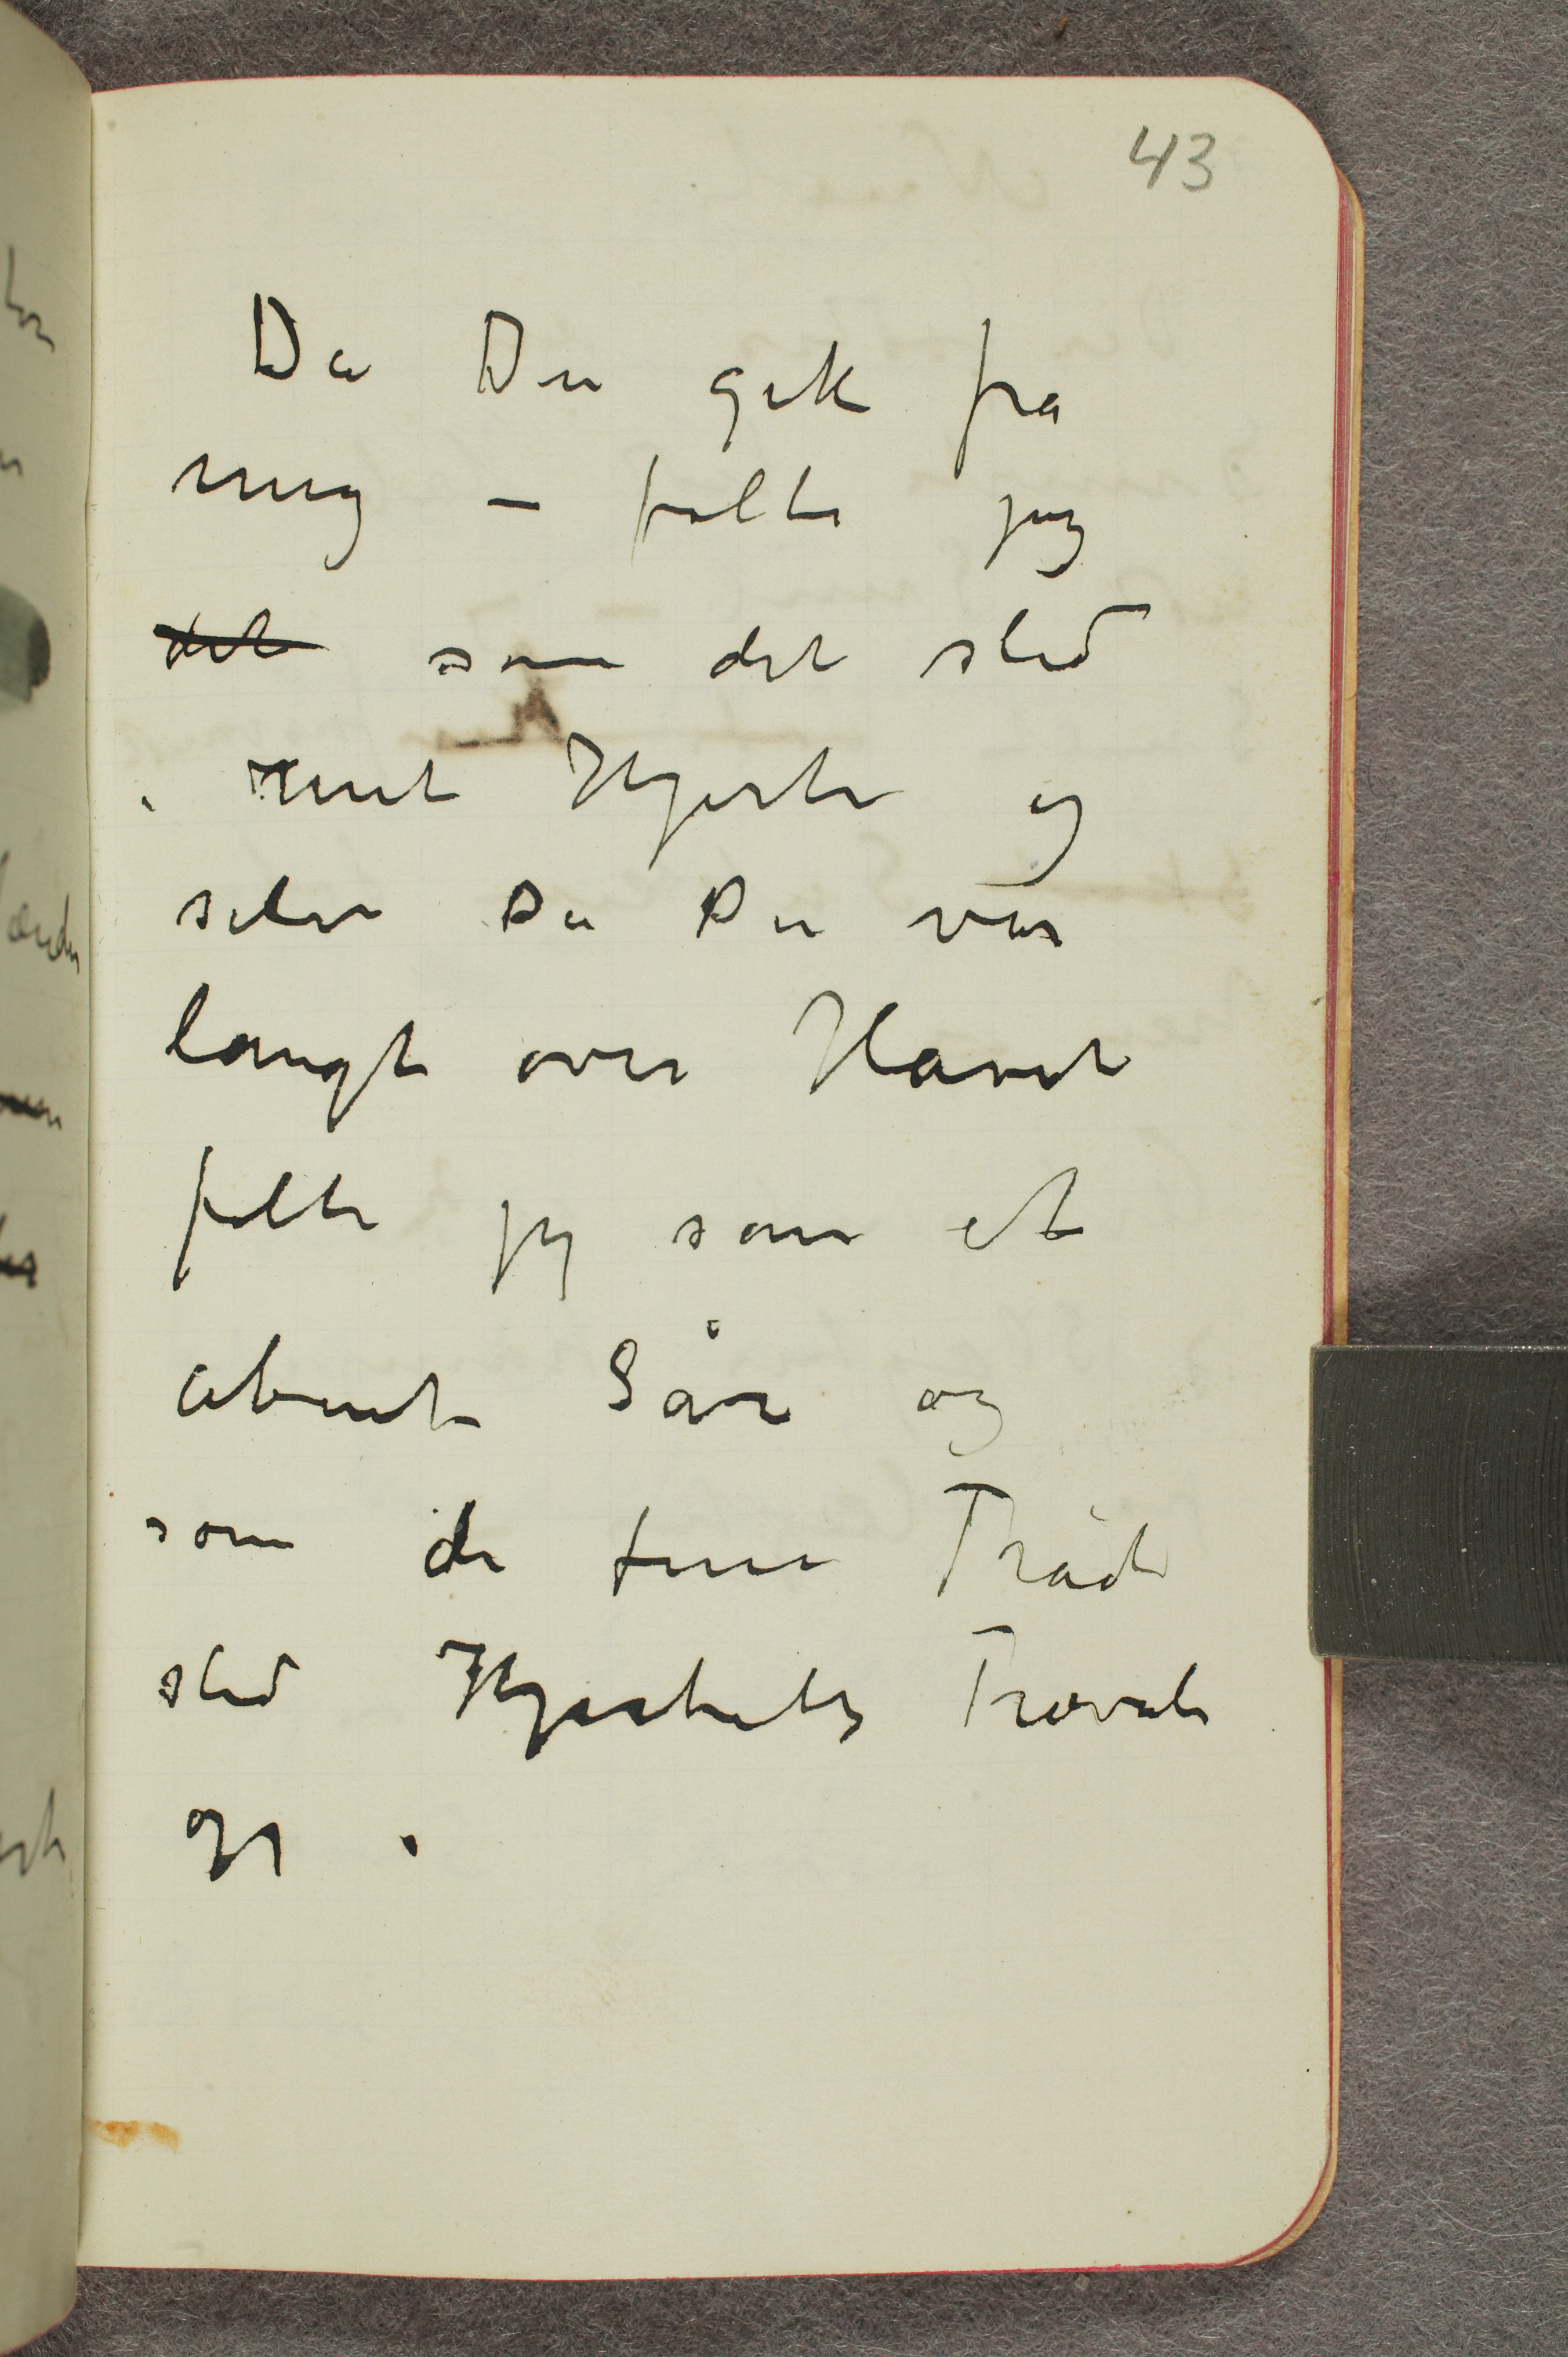 43
Da Du gik fra
mig – følte jeg
det som det sled
i mit Hjerte og
selv Da Du var
langt over Havet
følte jeg som et
abent Sår og
som de fine Tråde
sled Hjertets Travle
op.